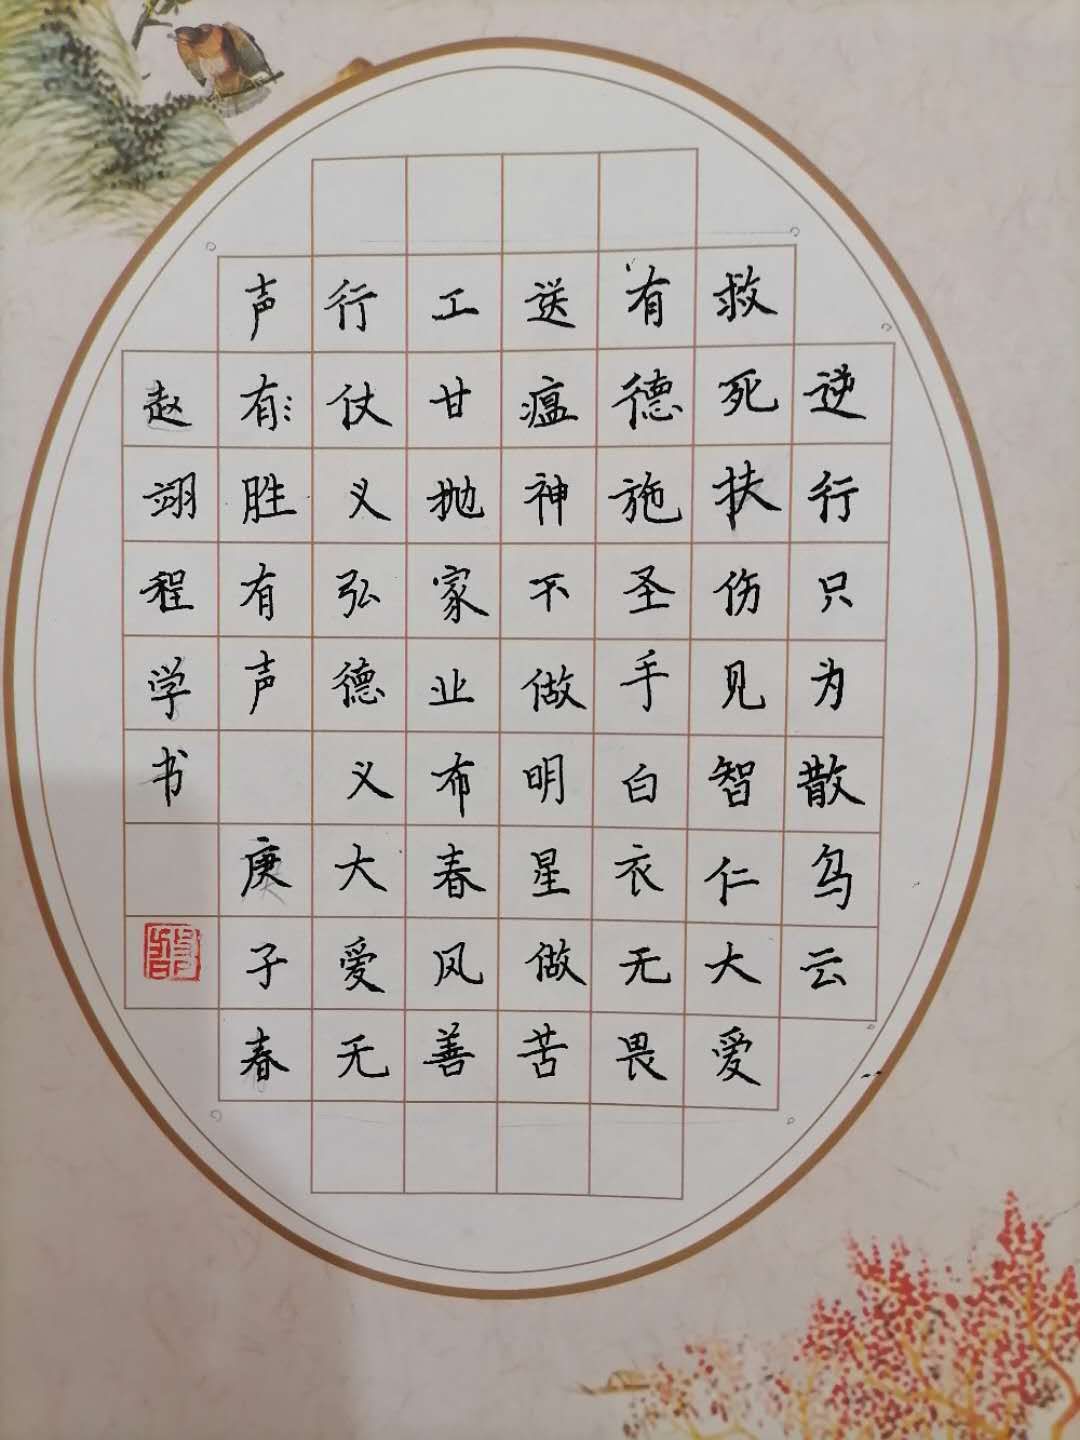 逆行只为散乌云
救死扶伤见智仁大爱
有德施圣手白衣无畏
送瘟神不做明星做苦
工甘抛家业布春风善
行仗义弘德义大爱无
声有胜有声 庚子春
赵翊程学书